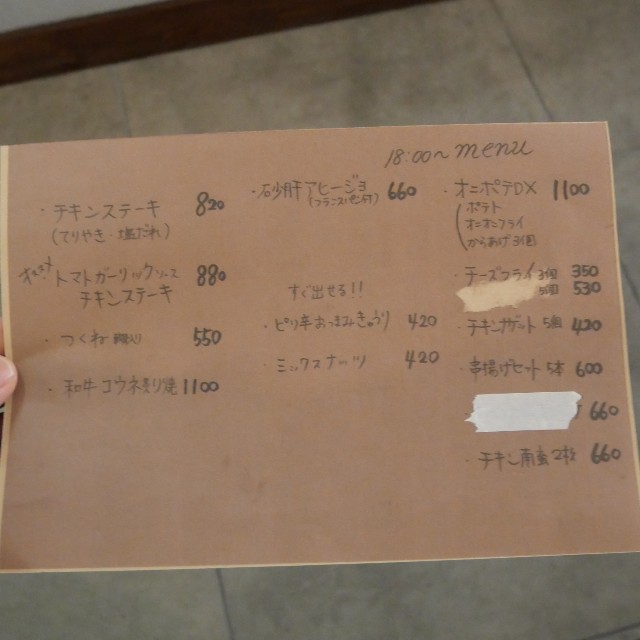 18:00～ menu
・チキンステーキ 820
(てりやき・塩だれ)
トマトガーリックソース 880
チキンステーキ
・つくね 550
・和牛コウネ炙り焼 1100
・砂肝アヒージョ 660
(フランスパン付)
すぐ出せる!!
・ピリ辛おつまみきゅうり 420
・ミックスナッツ 420
・オニポテDX 1100
ポテト
オニオンフライ
からあげ3個
・チーズフライ 3個 350
5個 530
・チキンナゲット 5個 420
・串揚げセット 5本 600
660
・チキン南蛮 2枚 660